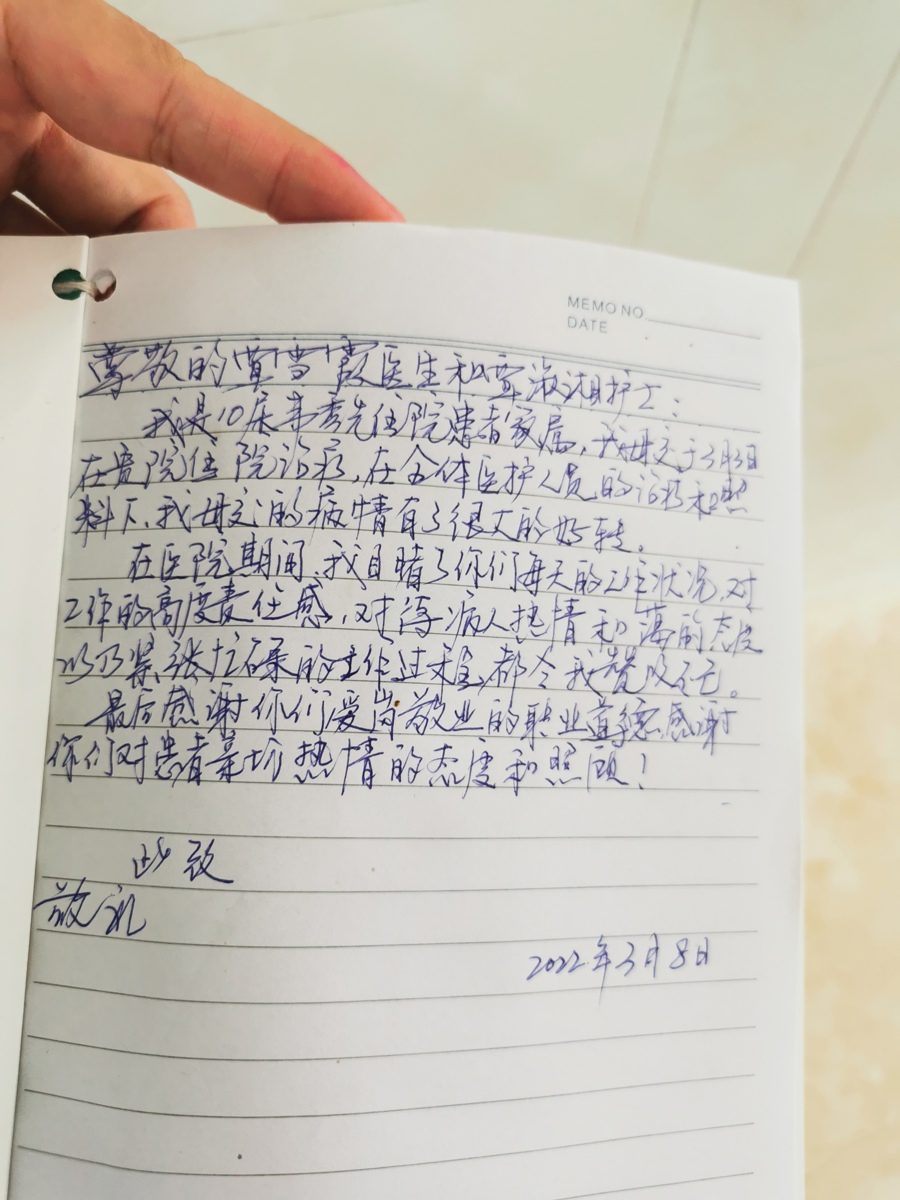 MEMO NO
DATE
尊敬的 雪霞医生和 淑湘护士:
我是10床 秀先住院患者家属,我母亲于3月3日
在贵院住院治疗,在全体医护人员的治疗和照
料下,我母亲的病情有了很大的好转。
在医院期间,我目睹了你们每天的工作状况,对
工作的高度责任感,对待病人热情和蔼的态度
以及紧张忙碌的工作过程,都令我赞叹不已。
最后感谢你们爱岗敬业的职业道德,感谢
你们对患者亲切热情的态度和照顾!
此致
敬礼
2022年3月8日